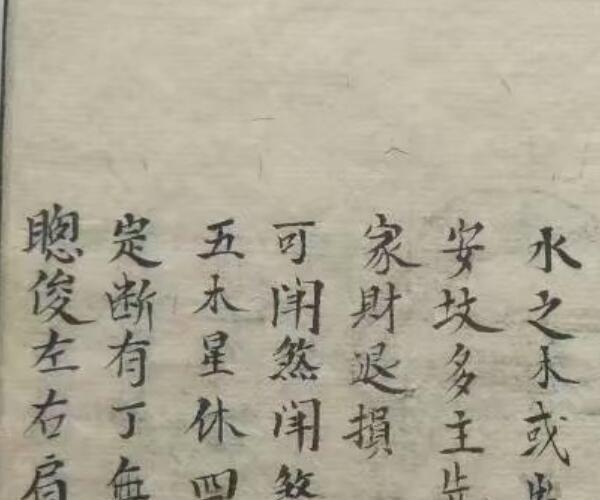 水之木或
安坟多主
家財退損
可闰煞闰煞
五木星休四
定断有丁無
聰俊左右肩